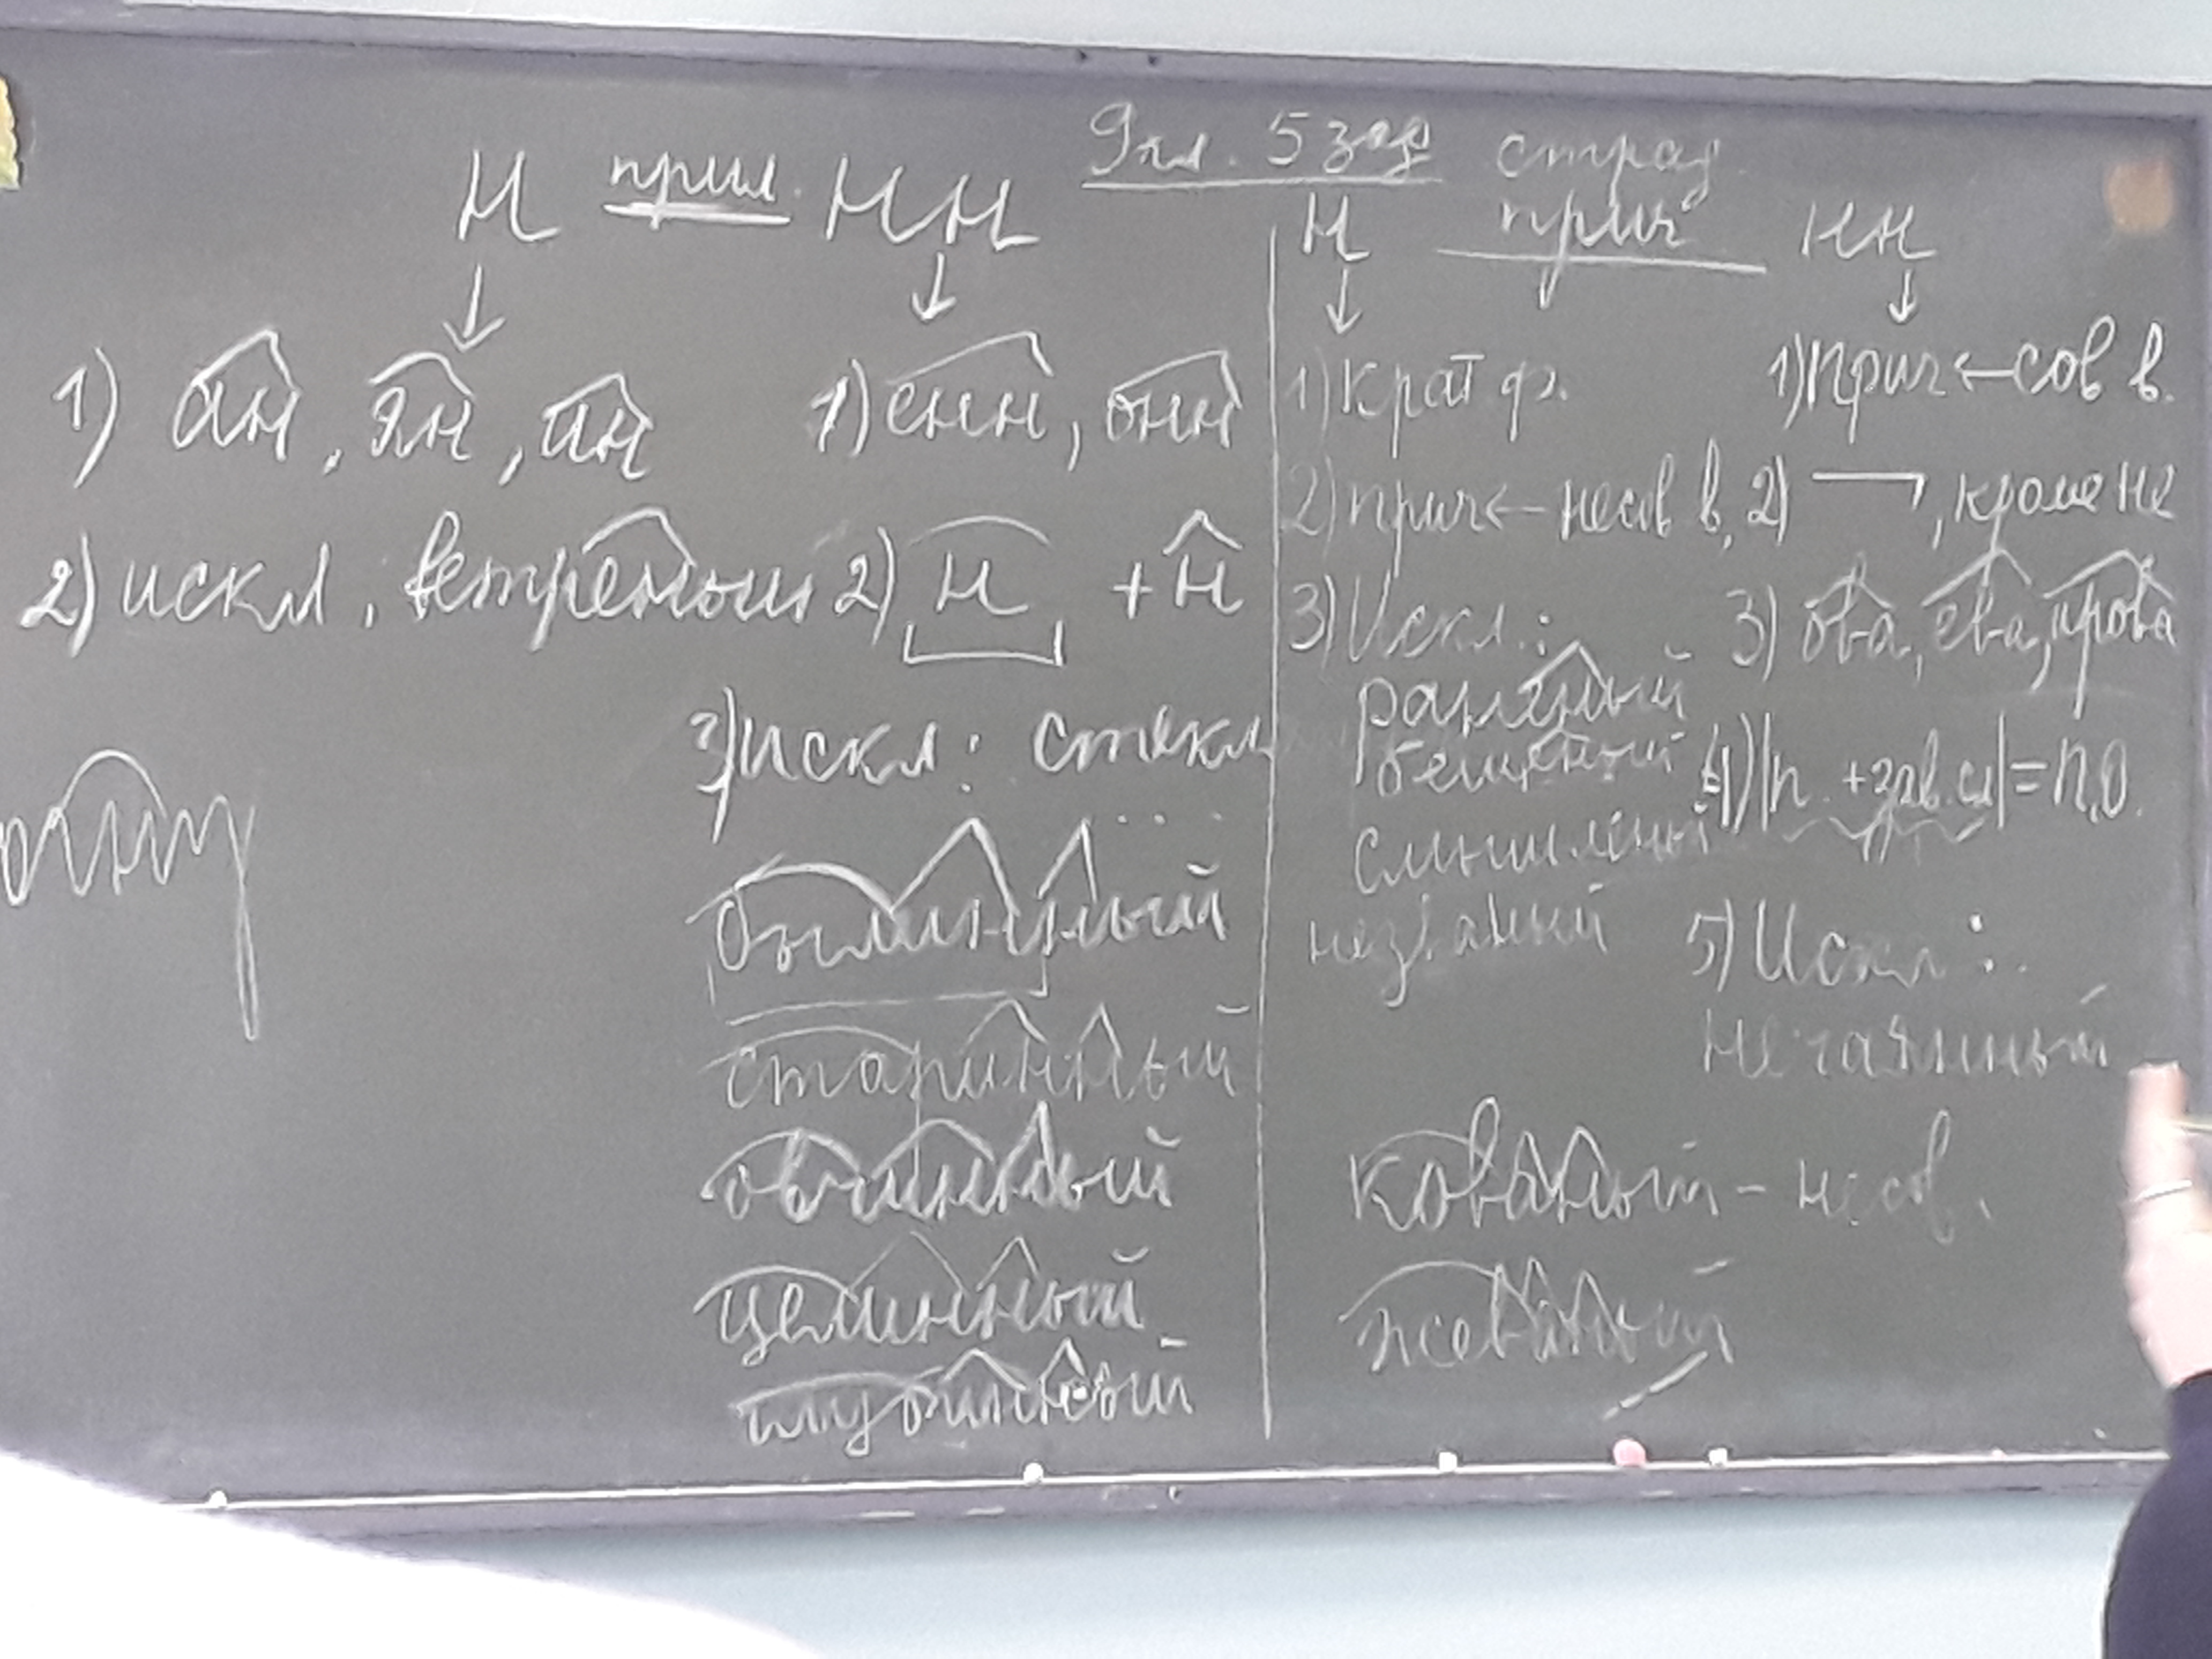 9 кл. 5 зад
Н прил. НН
1) ан, ян, ин
1) енн, онн
2) искл. ветреный
2) н + н
3) искл: стекл
былинный
старинный
овчинный
целинный
глубинный
страд.
Н прич НН
1) Крат ф.
1) прич ← сов в.
2) прич ← несов в.
2) , кроме не
3) Искл.:
раненый
смышленый
незваный
3) ова, ева, ирова
4) п. + зав. сл = п.о.
5) Искл:
нечаянный
кованый - несов.
жеваный